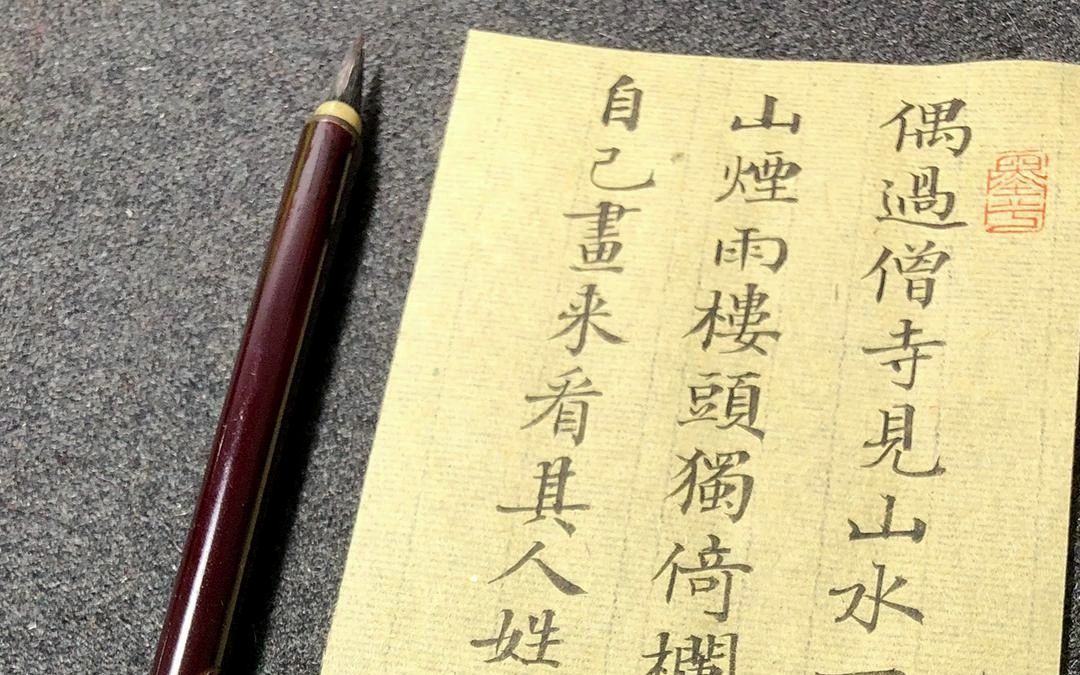 偶過僧寺見山水
山煙雨樓頭獨倚欄
自己畫来看其人姓